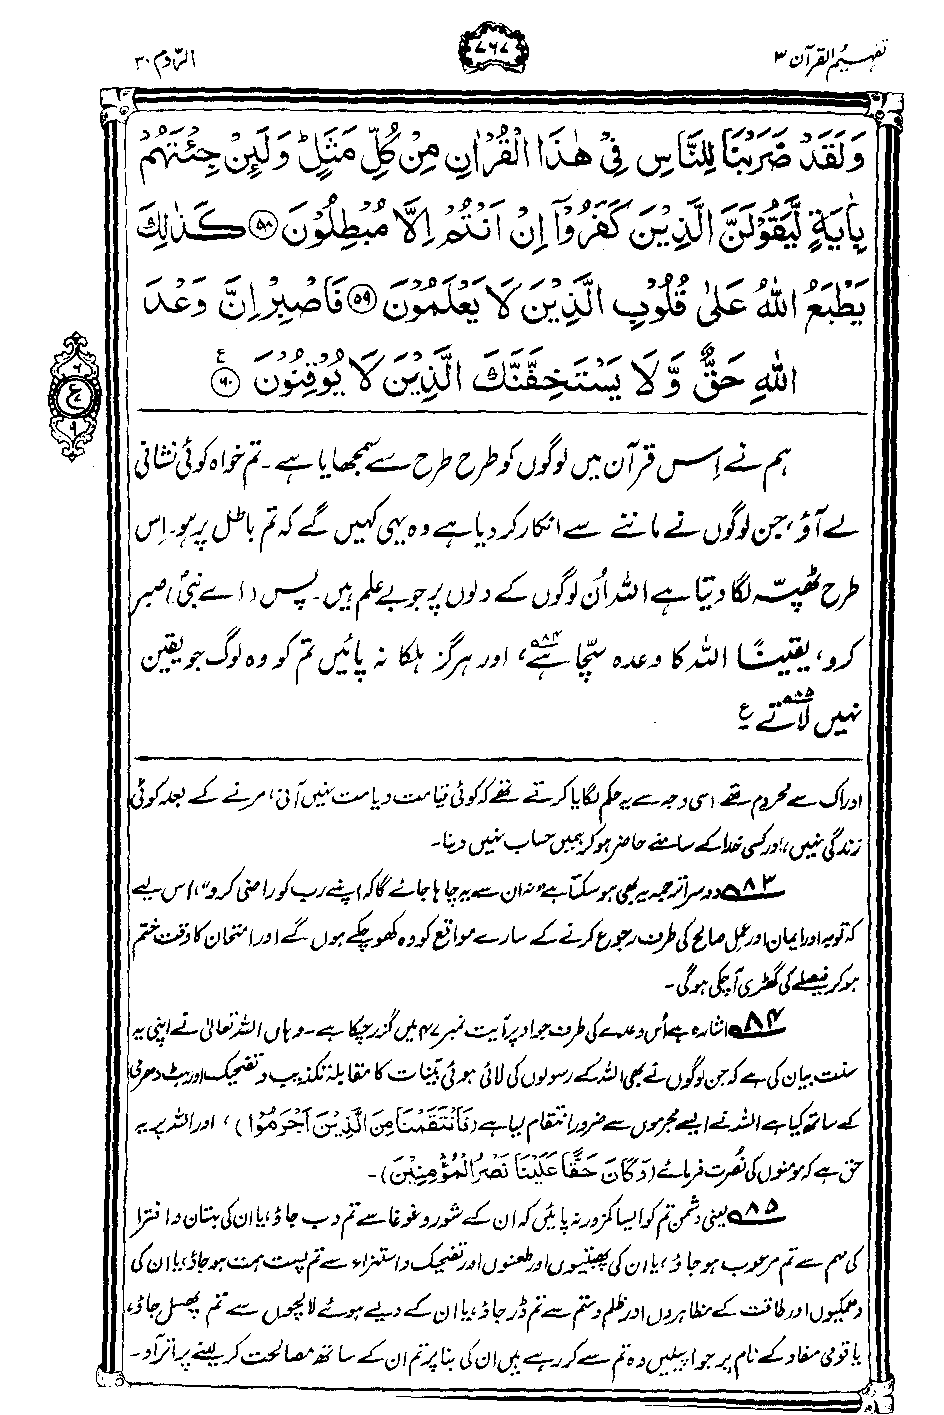 تفہیم القرآن ۳
۷۶۷
الرّوم ۳۰
وَلَقَدْ ضَرَبْنَا لِلنَّاسِ فِیْ هٰذَا الْقُرْاٰنِ مِنْ كُلِّ مَثَلٍ ؕ وَلَىِٕنْ جِئْتَهُمْ
بِاٰیَةٍ لَّیَقُوْلَنَّ الَّذِیْنَ كَفَرُوْۤا اِنْ اَنْتُمْ اِلَّا مُبْطِلُوْنَ ۝۵۸ كَذٰلِكَ
یَطْبَعُ اللّٰهُ عَلٰی قُلُوْبِ الَّذِیْنَ لَا یَعْلَمُوْنَ ۝۵۹ فَاصْبِرْ اِنَّ وَعْدَ
اللّٰهِ حَقٌّ وَّلَا یَسْتَخِفَّنَّكَ الَّذِیْنَ لَا یُوْقِنُوْنَ ۝۶۰ ع
۶
ع
۷
۹
ہم نے اِس قرآن میں لوگوں کو طرح طرح سے سمجھایا ہے۔ تم خواہ کوئی نشانی
لے آؤ، جن لوگوں نے ماننے سے انکار کر دیا ہے وہ یہی کہیں گے کہ تم باطل پر ہو۔ اِس
طرح ٹھپّہ لگا دیتا ہے اللہ اُن لوگوں کے دلوں پر جو بے علم ہیں۔ پس (اے نبیؐ) صبر
کرو، یقیناً اللہ کا وعدہ سچّا ہے۸۴، اور ہرگز ہلکا نہ پائیں تم کو وہ لوگ جو یقین
نہیں لاتے۸۵ ع
ادراک سے محروم تھے اسی وجہ سے یہ حکم لگایا کرتے تھے کہ کوئی قیامت ویامت نہیں آنی، مرنے کے بعد کوئی
زندگی نہیں، اور کسی خدا کے سامنے حاضر ہو کر ہمیں حساب نہیں دینا۔
۸۳ دوسرا ترجمہ یہ بھی ہو سکتا ہے "نہ ان سے یہ چاہا جائے گا کہ اپنے رب کو راضی کرو"، اس لیے
کہ توبہ اور ایمان اور عمل صالح کی طرف رجوع کرنے کے سارے مواقع کو وہ کھو چکے ہوں گے اور امتحان کا وقت ختم
ہو کر فیصلے کی گھڑی آ چکی ہوگی۔
۸۴ اشارہ ہے اُس وعدے کی طرف جو اوپر آیت نمبر ۴۷ میں گزر چکا ہے۔ وہاں اللہ تعالیٰ نے اپنی یہ
سنت بیان کی ہے کہ جن لوگوں نے بھی اللہ کے رسولوں کی لائی ہوئی بیّنات کا مقابلہ تکذیب و تضحیک اور ہٹ دھرمی
کے ساتھ کیا ہے اللہ نے ایسے مجرموں سے ضرور انتقام لیا ہے (فَانْتَقَمْنَا مِنَ الَّذِیْنَ اَجْرَمُوْا)، اور اللہ پر یہ
حق ہے کہ مومنوں کی نُصرت فرمائے (وَكَانَ حَقًّا عَلَیْنَا نَصْرُ الْمُؤْمِنِیْنَ)۔
۸۵ یعنی دشمن تم کو ایسا کمزور نہ پائیں کہ ان کے شور و غوغا سے تم دب جاؤ، یا ان کی بہتان و افترا
کی مہم سے تم مرعوب ہو جاؤ، یا ان کی پھبتیوں اور طعنوں اور تضحیک و استہزاء سے تم پست ہمت ہو جاؤ، یا ان کی
دھمکیوں اور طاقت کے مظاہروں اور ظلم و ستم سے تم ڈر جاؤ، یا ان کے دیے ہوئے لالچوں سے تم پھسل جاؤ،
یا قومی مفاد کے نام پر جو اپیلیں وہ تم سے کر رہے ہیں ان کی بنا پر تم ان کے ساتھ مصالحت کر لینے پر اتر آؤ۔